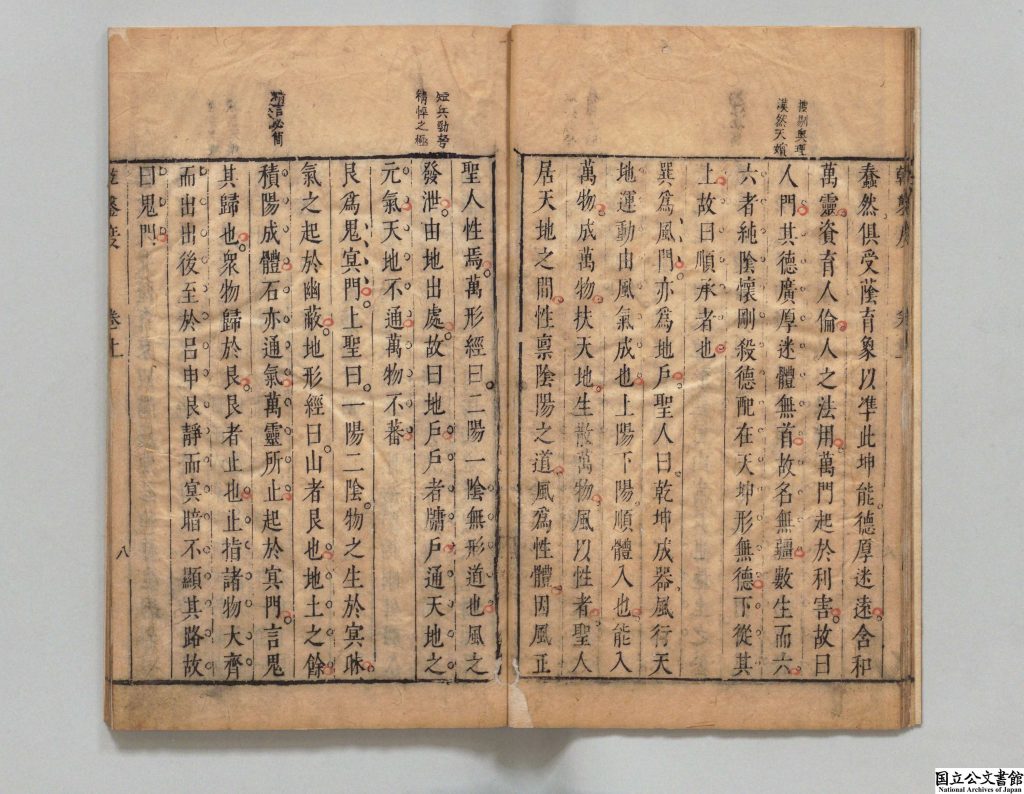 搜剔奧理
漠然天墳
蠢然俱受蔭育象以准此坤能德厚迷遠含和
萬靈資育人倫人之法用萬門起於利害故曰
人門其德廣厚迷體無首故名無疆數生而六
六者純陰懷剛殺德配在天坤形無德下從其
上故曰順承者也
巽爲風門亦爲地戶聖人曰乾坤成器風行天
地運動由風氣成也上陽下陽順體入也能入
萬物成萬物扶天地生散萬物風以性者聖人
居天地之間性禀陰陽之道風爲性體因風正
短兵勁弩
精悍之極
聖人性焉萬形經曰二陽一陰無形道也風之
發泄由地出處故曰地戶戶者牖戶通天地之
元氣天地不通萬物不蕃
艮爲鬼冥門上聖曰一陽二陰物之生於冥昧
氣之起於幽蔽地形經曰山者艮也地土之餘
積陽成體石亦通氣萬靈所止起於冥門言鬼
其歸也衆物歸於艮艮者止也止指諸物大齊
而出出後至於呂申艮靜而冥暗不顯其路故
曰鬼門
言必簡
乾鑿度
卷上
八
国立公文書館
National Archives of Japan